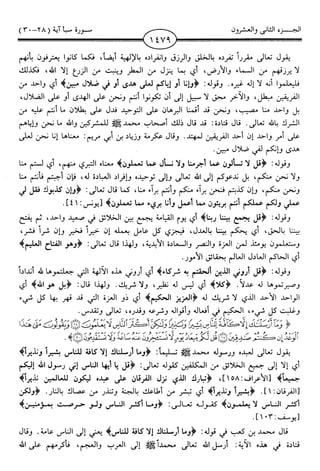 الجـــزء الثانـي والعشـرون
١٤٧٩
سـورة سبأ آية (٢٨-٣٠)
يقول تعالى مقرراً تفرده بالخلق والرزق وانفراده بالإلهية أيضاً، فكما كانوا يعترفون بأنهم
لا يرزقهم من السماء والأرض، أي بما ينزل من المطر وينبت من الزرع إلا الله، فكذلك
فليعلموا أنه لا إله غيره. وقوله: ﴿وإنا أو إياكم لعلى هدى أو في ضلال مبين﴾ أي واحد من
الفريقين مبطل، والآخر محق لا سبيل إلى أن تكونوا أنتم ونحن على الهدى أو على الضلال،
بل واحد منا مصيب، ونحن قد أقمنا البرهان على التوحيد فدل على بطلان ما أنتم عليه من
الشرك بالله تعالى. قال قتادة: قد قال ذلك أصحاب محمد ﷺ للمشركين والله ما نحن وإياهم
على أمر واحد إن أحد الفريقين لمهتد. وقال عكرمة وزياد بن أبي مريم: معناها إنا نحن لعلى
هدى وإنكم لفي ضلال مبين.
وقوله: ﴿قل لا تسألون عما أجرمنا ولا نسأل عما تعملون﴾ معناه التبري منهم، أي لستم منا
ولا نحن منكم، بل ندعوكم إلى الله تعالى وإلى توحيده وإفراد العبادة له، فإن أجبتم فأنتم منا
ونحن منكم، وإن كذبتم فنحن برآء منكم وأنتم برآء منا، كما قال تعالى: ﴿وإن كذبوك فقل لي
عملي ولكم عملكم أنتم بريئون مما أعمل وأنا بريء مما تعملون﴾ [يونس: ٤١].
وقوله: ﴿قل يجمع بيننا ربنا﴾ أي يوم القيامة يجمع بين الخلائق في صعيد واحد، ثم يفتح
بيننا بالحق، أي يحكم بيننا بالعدل، فيجزي كل عامل بعمله إن خيراً فخير وإن شراً فشر،
وستعلمون يومئذ لمن العزة والنصر والسعادة الأبدية، ولهذا قال تعالى: ﴿وهو الفتاح العليم﴾
أي الحاكم العادل العالم بحقائق الأمور.
وقوله: ﴿قل أروني الذين ألحقتم به شركاء﴾ أي أروني هذه الآلهة التي جعلتموها لله أنداداً
وصيرتموها له عدلاً. ﴿كلا﴾ أي ليس له نظير، ولا شريك. ولهذا قال: ﴿بل هو الله﴾ أي
الواحد الأحد الذي لا شريك له ﴿العزيز الحكيم﴾ أي ذو العزة التي قد قهر بها كل شيء
وغلبت كل شيء، الحكيم في أفعاله وأقواله وشرعه وقدره، تعالى وتقدس.
يقول تعالى لعبده ورسوله محمد ﷺ تسليماً: ﴿وما أرسلناك إلا كافة للناس بشيراً ونذيراً﴾
أي إلا إلى جميع الخلائق من المكلفين كقوله تعالى: ﴿قل يا أيها الناس إني رسول الله إليكم
جميعاً﴾ [الأعراف: ١٥٨]، ﴿تبارك الذي نزل الفرقان على عبده ليكون للعالمين نذيراً﴾
[الفرقان: ١]. ﴿بشيراً ونذيراً﴾ أي تبشر من أطاعك بالجنة وتنذر من عصاك بالنار. ﴿ولكن
أكثر الناس لا يعلمون﴾ كقولـه تعالـى: ﴿ومـا أكثـر النـاس ولـو حـرصـت بمـؤمنيـن﴾
[يوسف: ١٠٣]
قال محمد بن كعب في قوله: ﴿وما أرسلناك إلا كافة للناس﴾ يعني إلى الناس عامة. وقال
قتادة في هذه الآية: أرسل الله تعالى محمداً ﷺ إلى العرب والعجم، فأكرمهم على الله